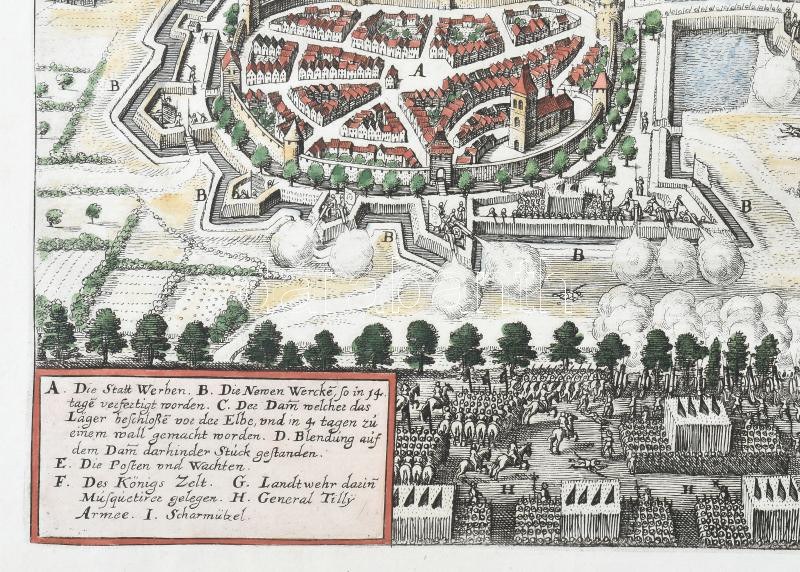 B
A
B
B
B
B
A. Die Statt Werben. B. Die Newen Wercke, so in 14.
tagē verfertigt worden. C. Der Dam̄ welcher das
Läger beschloße vor der Elbe, vnd in 4 tagen zü
einem wall gemacht worden. D. Blendung auf
dem Dam̄ darhinder Stück gestanden.
E. Die Posten vnd Wachten.
F. Des Königs Zelt. G. Landtwehr darin̄
Müsquetirer gelegen. H. General Tillÿ
Armee. I. Scharmützel.
H
H